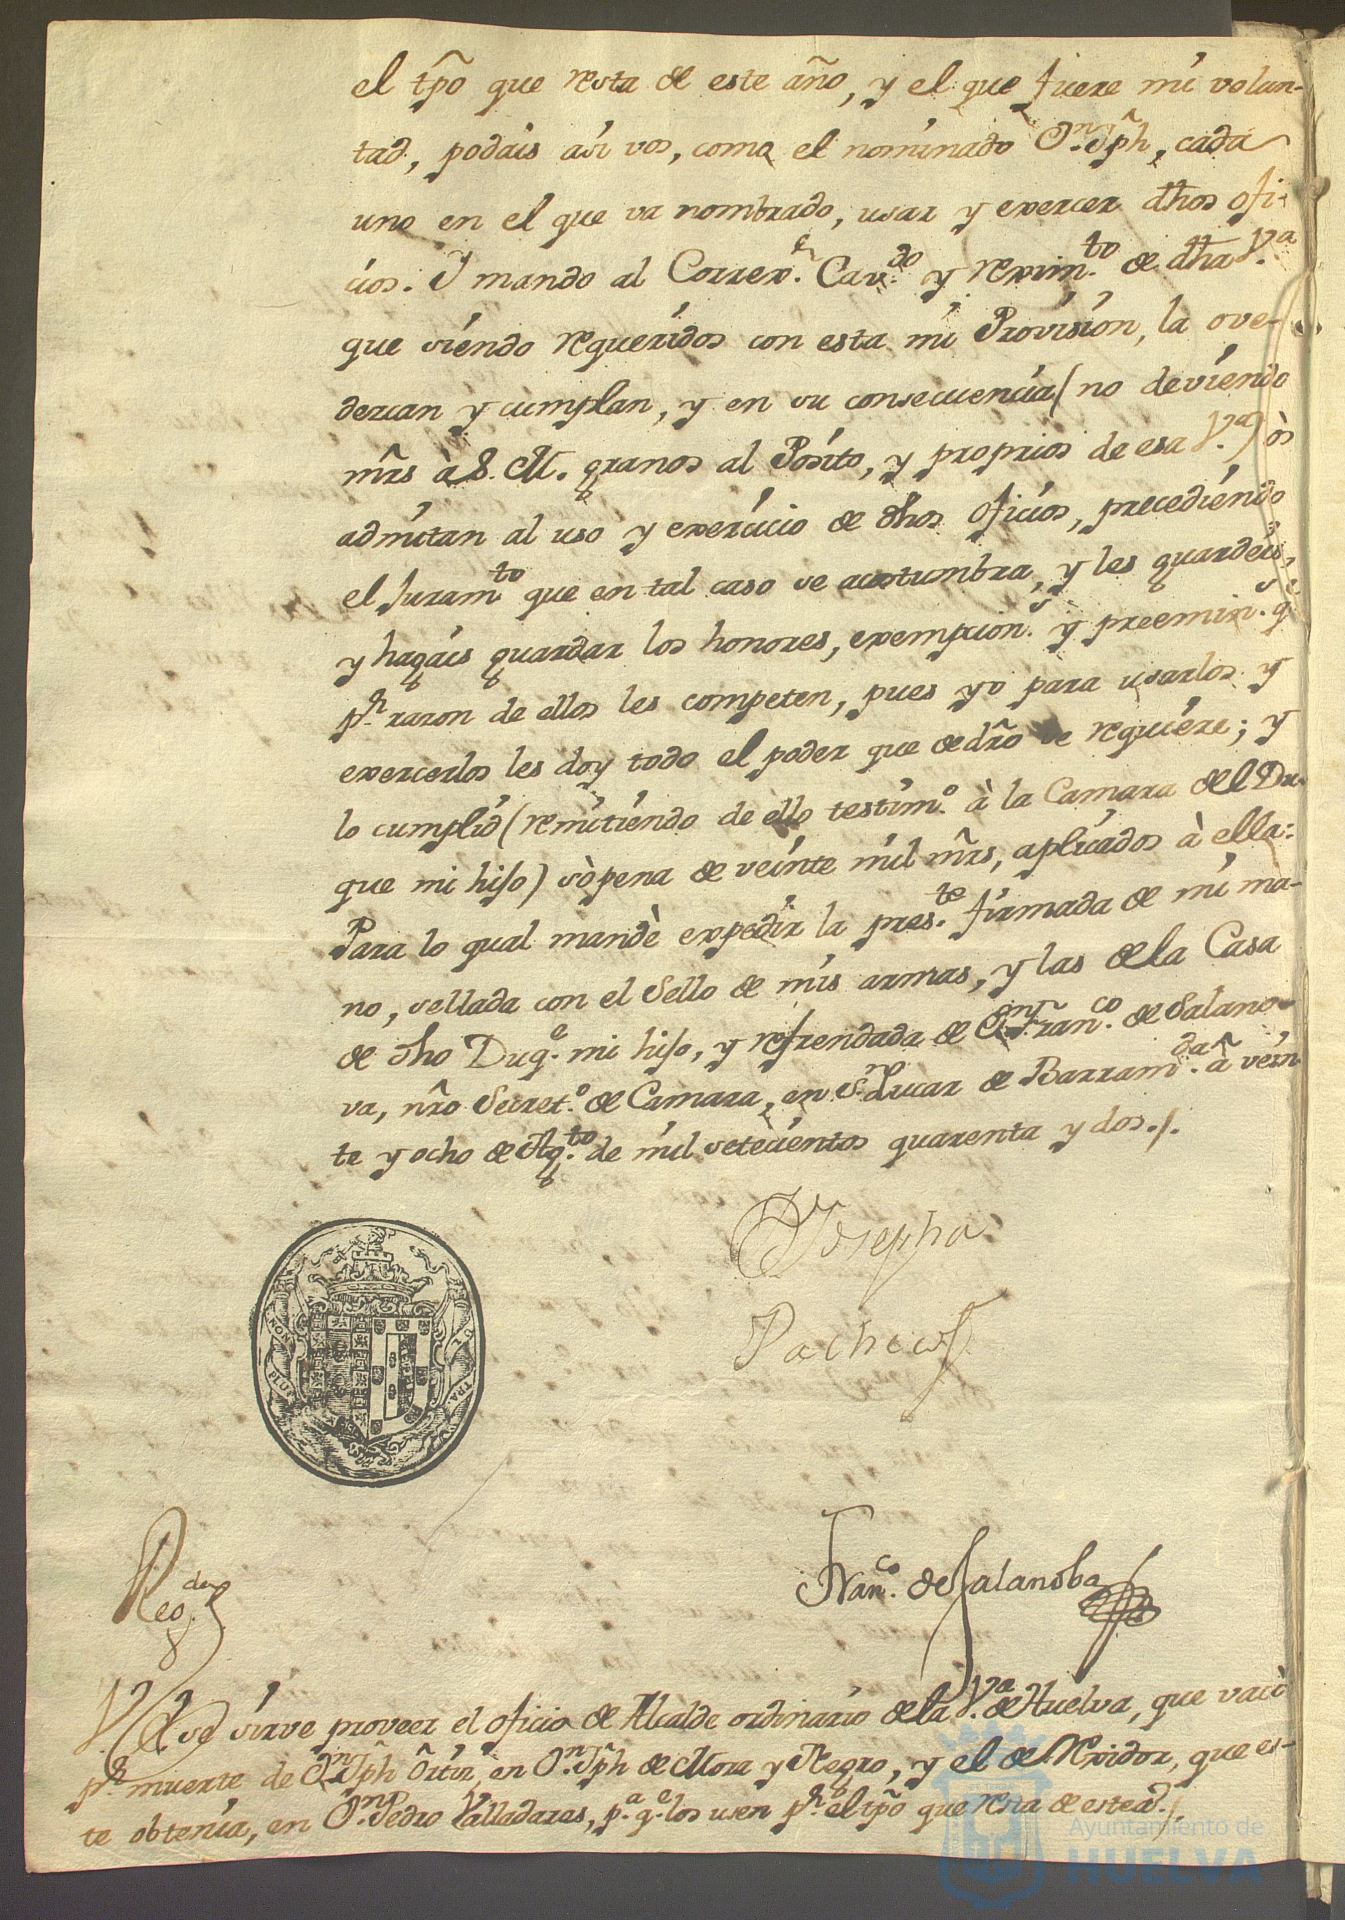 el tp̃o que resta de este año, y el que fuere mi volun-
tad, podais asi vos, como el nominado Dn. Jph̃, cada
uno en el que va nombrado, usar y exercer dhos ofi-
cios. Y mando al Correxr. Cavdo. y reximto. de dha Va.
que siendo requeridos con esta mi Provision, la ove-
dezcan y cumplan, y en su consecuencia (no deviendo
mrs̃ à S. M. granos al Posito, y proprios de esa Va.) òs
admitan al uso y exercicio de dhos oficios, precediendo
el Juramto. que en tal caso se acostumbra, y les guardeis,
y hagais guardar los honores, exempcions. y preemins. qe.
pr. razon de ellos les competen, pues yo para usarlos y
exercerlos les doy todo el poder que de dr̃o se requiere; y
lo cumplid (remitiendo de ello testimo. à la Camara del Du-
que mi hijo) sòpena de veinte mil mr̃s, aplicados à ella:
Para lo qual mandè expedir la preste. firmada de mi ma-
no, sellada con el Sello de mis armas, y las de la Casa
de dho Duqe. mi hijo, y refrendada de Dn. Franco. de Salano-
va, nr̃o Secreto. de Camara, en Sn. Lucar de Barramda. à vein-
te y ocho de Agto. de mil setecientos quarenta y dos./.
Josepha
Pacheco
NON
PLUS
UL
TRA
Franco. de Salanoba
Regda.
V. E. se sirve proveer el oficio de Alcalde ordinario de la Va. de Huelva, que vacò
pr. muerte de Dn. Jph̃ Ortiz, en Dn. Jph̃ de Mora y Negro, y el de Rexidor, que es-
te obtenia, en Dn. Pedro Valladares, pa. qe. los usen pr. el tp̃o que resta de este a.
Ayuntamiento de
HUELVA